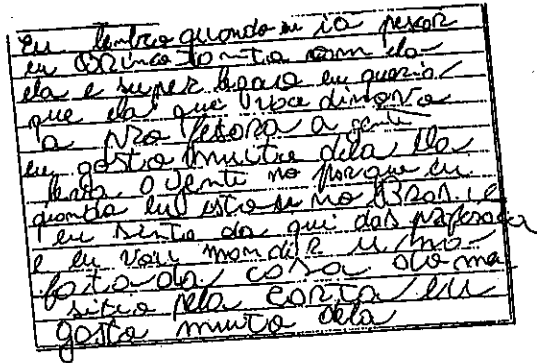 eu lembro quando eu ia pescar
eu brinco tanto com ela
ela e super baca eu queria
que ela que
a professora a gente
eu gosto muito dela ela
leva o jente no porque eu
quando eu no Brasil
eu sinto da qui das profesora
e eu vou mandar uma
foita da cosa do ma
sitio pela corta eu
gosto muito dela